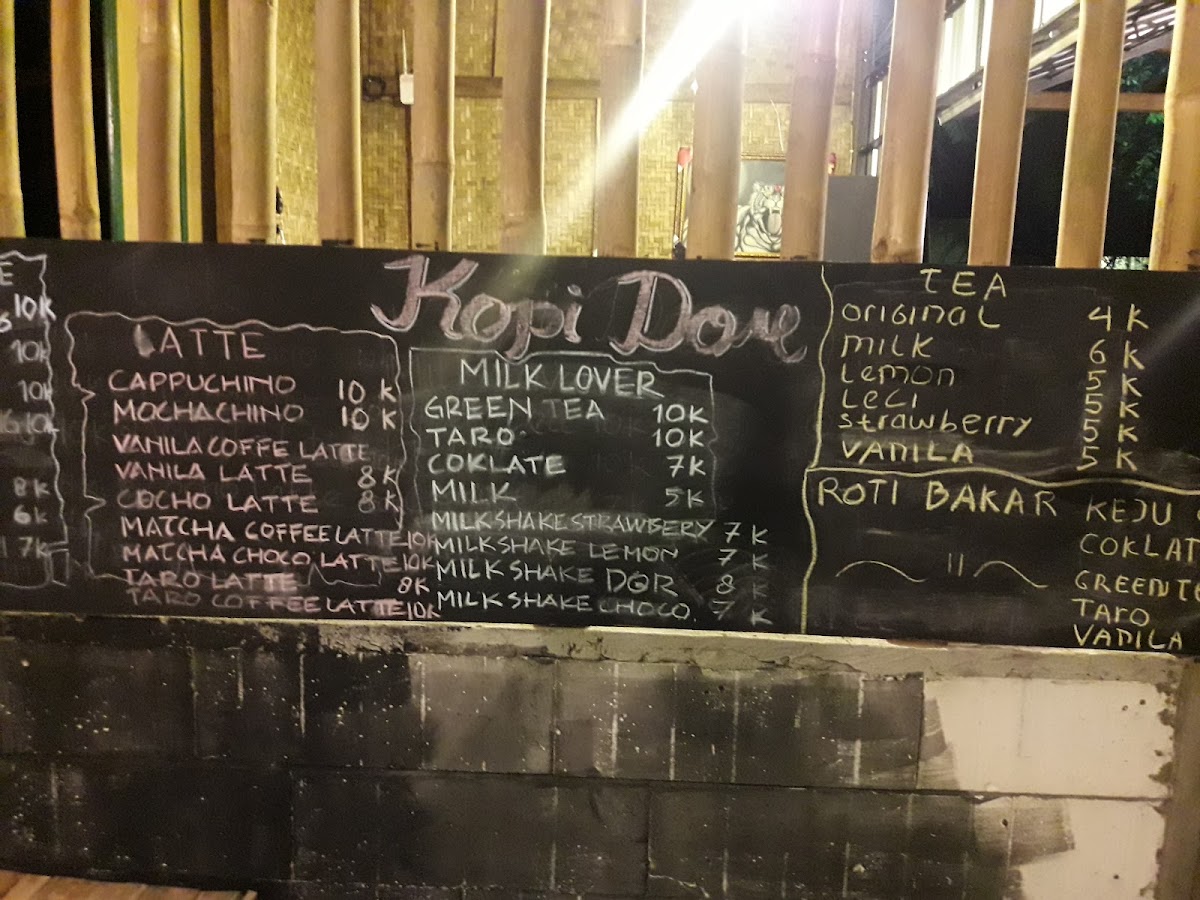 E
10K
10K
10K
10K
8K
6K
7K
Kopi Dore
LATTE
CAPPUCHINO 10 K
MOCHACHINO 10 K
VANILA COFFE LATTE
VANILA LATTE 8K
COCHO LATTE 8K
MATCHA COFFEE LATTE 10K
MATCHA CHOCO LATTE 10K
TARO LATTE 8K
TARO COFFEE LATTE 10K
MILK LOVER
GREEN TEA 10K
TARO 10K
COKLATE 7K
MILK 5K
MILKSHAKE STRAWBERY 7 K
MILKSHAKE LEMON 7 K
MILKSHAKE DGR 8 K
MILKSHAKE CHOCO. 7 K
TEA
ORIGINAL 4 K
MILK 6 K
Lemon 5 K
LECI 5 K
strawberry 5 K
VANILA 5 K
ROTI BAKAR
KEJU
COKLAT
GREENTE
TARO
VANILA